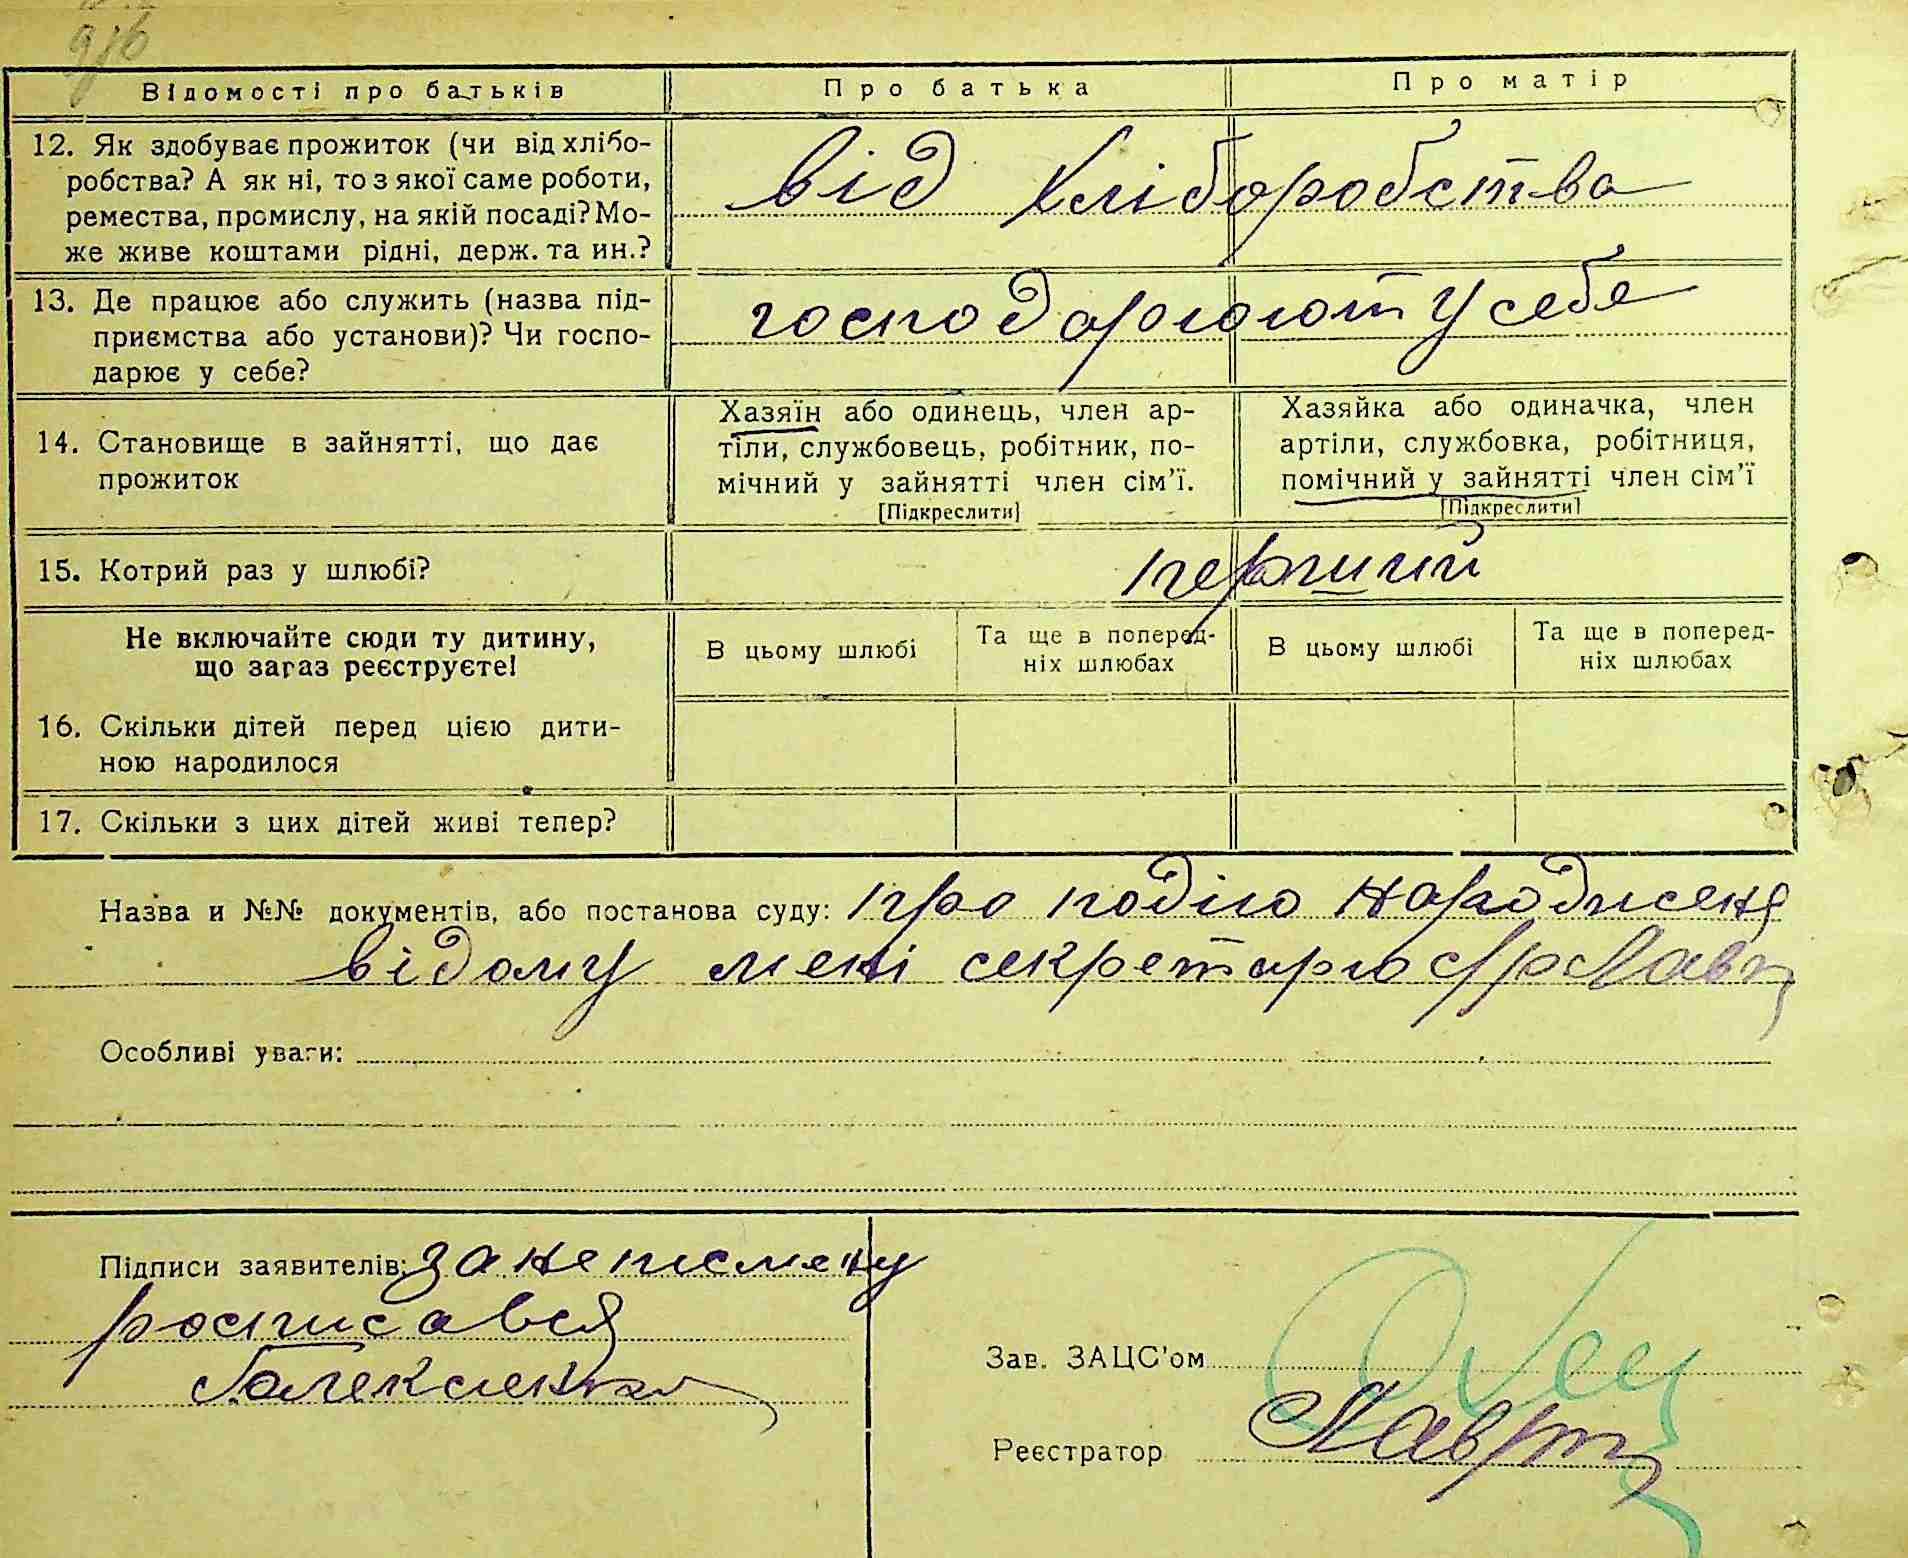 Відомості про батьків
Про батька
Про матір
12. Як здобуває прожиток (чи від хлібо-
робства? А як ні, то з якої саме роботи,
ремества, промислу, на якій посаді? Мо-
же живе коштами рідні, держ. та ин.?
від хліборобства
13. Де працює або служить (назва під-
приємства або установи)? Чи госпо-
дарює у себе?
господарюют у себе
14. Становище в зайнятті, що дає
прожиток
Хазяїн або одинець, член ар-
тіли, службовець, робітник, по-
мічний у зайнятті член сім'ї.
[Підкреслити]
Хазяйка або одиначка, член
артіли, службовка, робітниця,
помічний у зайнятті член сім'ї
[Підкреслити]
15. Котрий раз у шлюбі?
перший
Не включайте сюди ту дитину,
що зараз реєструєте!
В цьому шлюбі
Та ще в поперед-
ніх шлюбах
В цьому шлюбі
Та ще в поперед-
ніх шлюбах
16. Скільки дітей перед цією дити-
ною народилося
17. Скільки з цих дітей живі тепер?
Назва и №№ документів, або постанова суду: про подію народженя
відому мені секретарю с/р
Особливі уваги:
Підписи заявителів: за неписмену
росписався
Зав. ЗАЦС'ом
Реєстратор